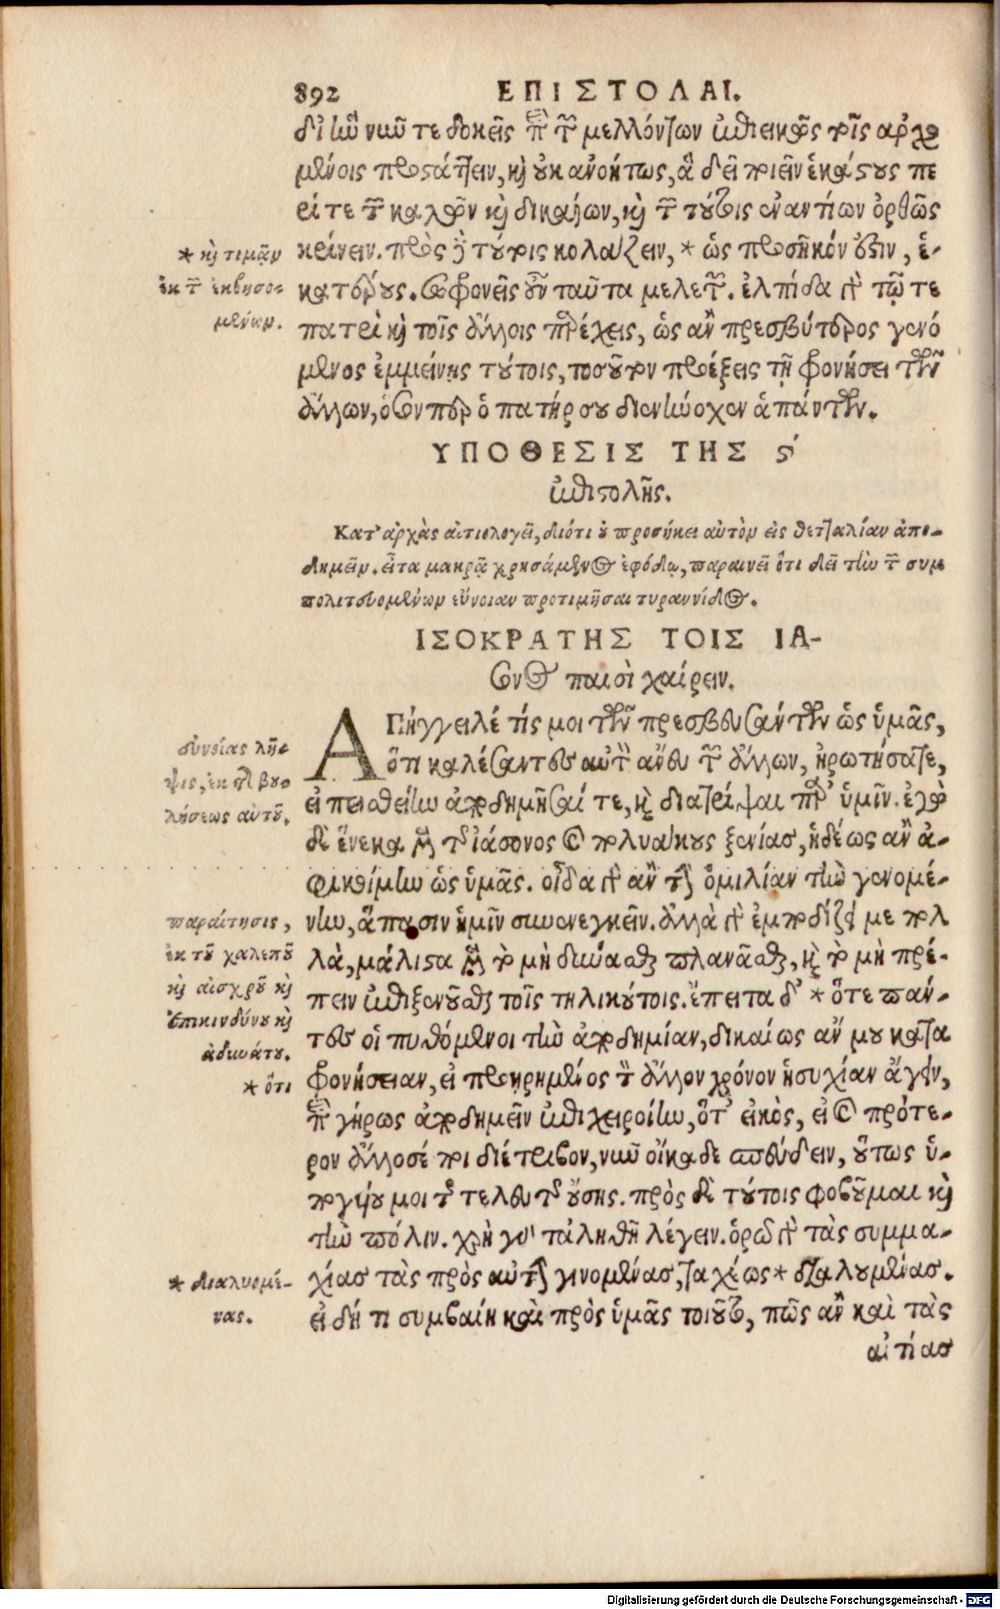 892 ΕΠΙΣΤΟΛΑΙ.
δι' ἣν νῦν τε δοκεῖς περὶ τῶν μελλόντων ἐπιεικῶς τοῖς ἀρχο
μένοις προστάττειν, καὶ οὐκ ἀνοήτως, ἃ δεῖ ποιεῖν ἑκάστους πε
ρί τε τῶν καλῶν καὶ δικαίων, καὶ τῶν τούτοις ἐναντίων ὀρθῶς
κρίνειν. πρὸς δὲ τούτοις κολάζειν, * ὡς προσῆκόν ἐστιν, ἑ-
* καὶ τιμᾷν
ἐκ τῶν ἐκβησο-
μένων.
κατέρους. σωφρονεῖς οὖν ταῦτα μελετῶν. ἐλπίδα γὰρ τῷ τε
πατρὶ καὶ τοῖς ἄλλοις παρέχεις, ὡς ἂν πρεσβύτερος γενό
μενος ἐμμείνῃς τούτοις, τοσοῦτον προέξεις τῇ φρονήσει τῶν
ἄλλων, ὅσον περ ὁ πατήρ σου διενήνοχεν ἁπάντων.
ΥΠΟΘΕΣΙΣ ΤΗΣ ϛ'
ἐπιστολῆς.
Κατ' ἀρχὰς αἰτιολογεῖ, διότι οὐ προσήκει αὐτὸν εἰς θετταλίαν ἀπο-
δημεῖν. εἶτα μακρᾷ χρησάμενος ἐφόδῳ, παραινεῖ ὅτι δεῖ τὴν τῶν συμ
πολιτευομένων εὔνοιαν προτιμῆσαι τυραννίδος.
ΙΣΟΚΡΑΤΗΣ ΤΟΙΣ ΙΑ-
σονος παισὶ χαίρειν.
ΑΠήγγειλέ τίς μοι τῶν πρεσβευσάντων ὡς ὑμᾶς,
ὅτι καλέσαντες αὐτὸν ἄνευ τῶν ἄλλων, ἠρωτήσατε,
εἰ πεισθείην ἀποδημῆσαί τε, καὶ διατρίψαι παρ' ὑμῖν. ἐγὼ
δὲ ἕνεκα μὲν τῆς ἰάσονος καὶ πολυάκους ξενίας, ἡδέως ἂν ἀ-
φικοίμην ὡς ὑμᾶς. οἶδα γὰρ ἂν τὴν ὁμιλίαν τὴν γενομέ-
νην, ἅπασιν ἡμῖν συνενεγκεῖν. ἀλλὰ γὰρ ἐμποδίζει με πολ
λὰ, μάλιστα μὲν τὸ μὴ δύνασθαι πλανᾶσθαι, καὶ τὸ μὴ πρέ-
πειν ἐπιξενοῦσθαι τοῖς τηλικούτοις. ἔπειτα δ' * ὅτε πάν-
τες οἱ πυθόμενοι τὴν ἀποδημίαν, δικαίως ἄν μου κατα
φρονήσειαν, εἰ προῃρημένος τὸν ἄλλον χρόνον ἡσυχίαν ἄγειν,
ἐπὶ γήρως ἀποδημεῖν ἐπιχειροίην, ὅτ' εἰκὸς, εἰ καὶ πρότε-
ρον ἄλλοσέ ποι διέτριβον, νῦν οἴκαδε σπεύδειν, οὕτως ὑ-
πογύου μοι τῆς τελευτῆς οὔσης. πρὸς δὲ τούτοις φοβοῦμαι καὶ
τὴν πόλιν. χρὴ γὰρ τἀληθῆ λέγειν. ὁρῶ γὰρ τὰς συμμα-
χίας τὰς πρὸς αὐτὴν γινομένας, ταχέως * διαλυμένας.
εἰ δή τι συμβαίη καὶ πρὸς ὑμᾶς τοιοῦτον, πῶς ἂν καὶ τὰς
αἰτίας
συνοίας λῆ-
ψις, ἐκ τῆς βου-
λήσεως αὐτοῦ.
παραίτησις,
ἐκ τοῦ χαλεποῦ
καὶ αἰσχροῦ καὶ
ἐπικινδύνου καὶ
ἀδυνάτου.
* ὅτι
* διαλυομέ-
νας.
Digitalisierung gefördert durch die Deutsche Forschungsgemeinschaft - DFG